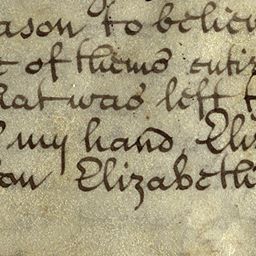 ason to believ
t of theme entiz
hat was left t
my hand Eliz
on Elizabeth